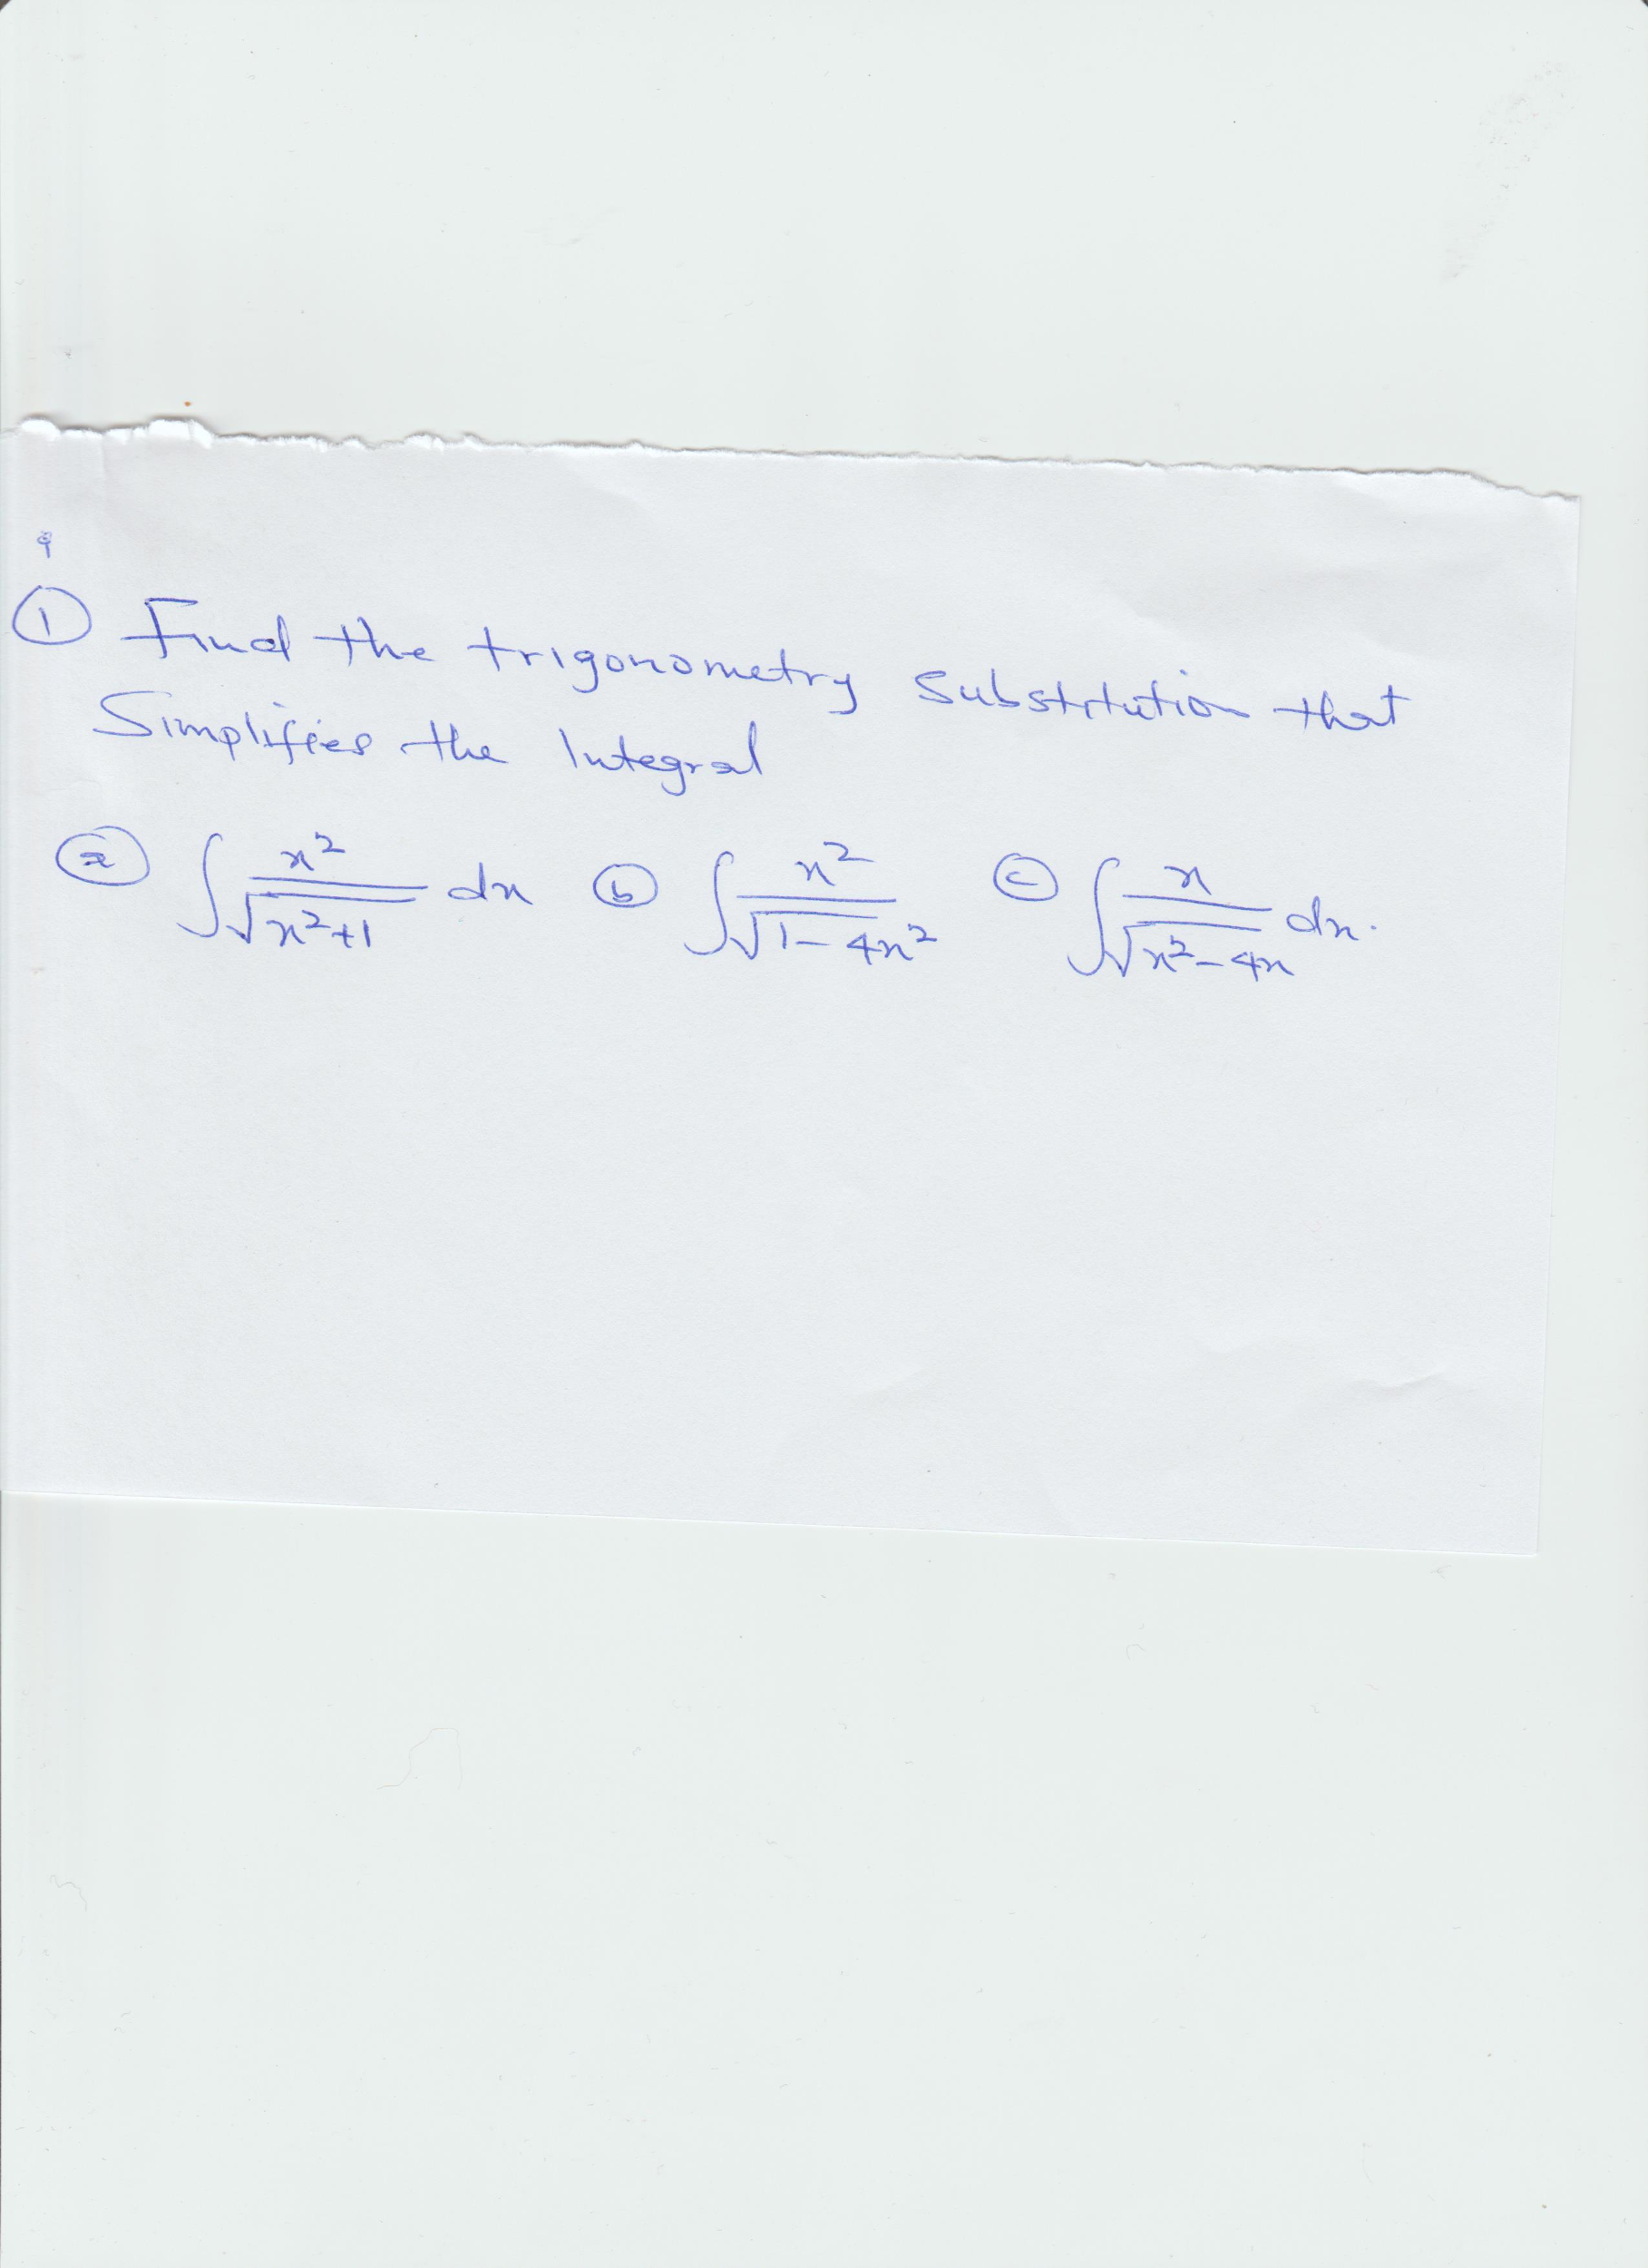 ① Find the trigonometry substitution that
Simplifies the Integral
ⓐ ∫ x²/√(x²+1) dx ⓑ ∫ x²/√(1-4x²) ⓒ ∫ x/√(x²-4x) dx.